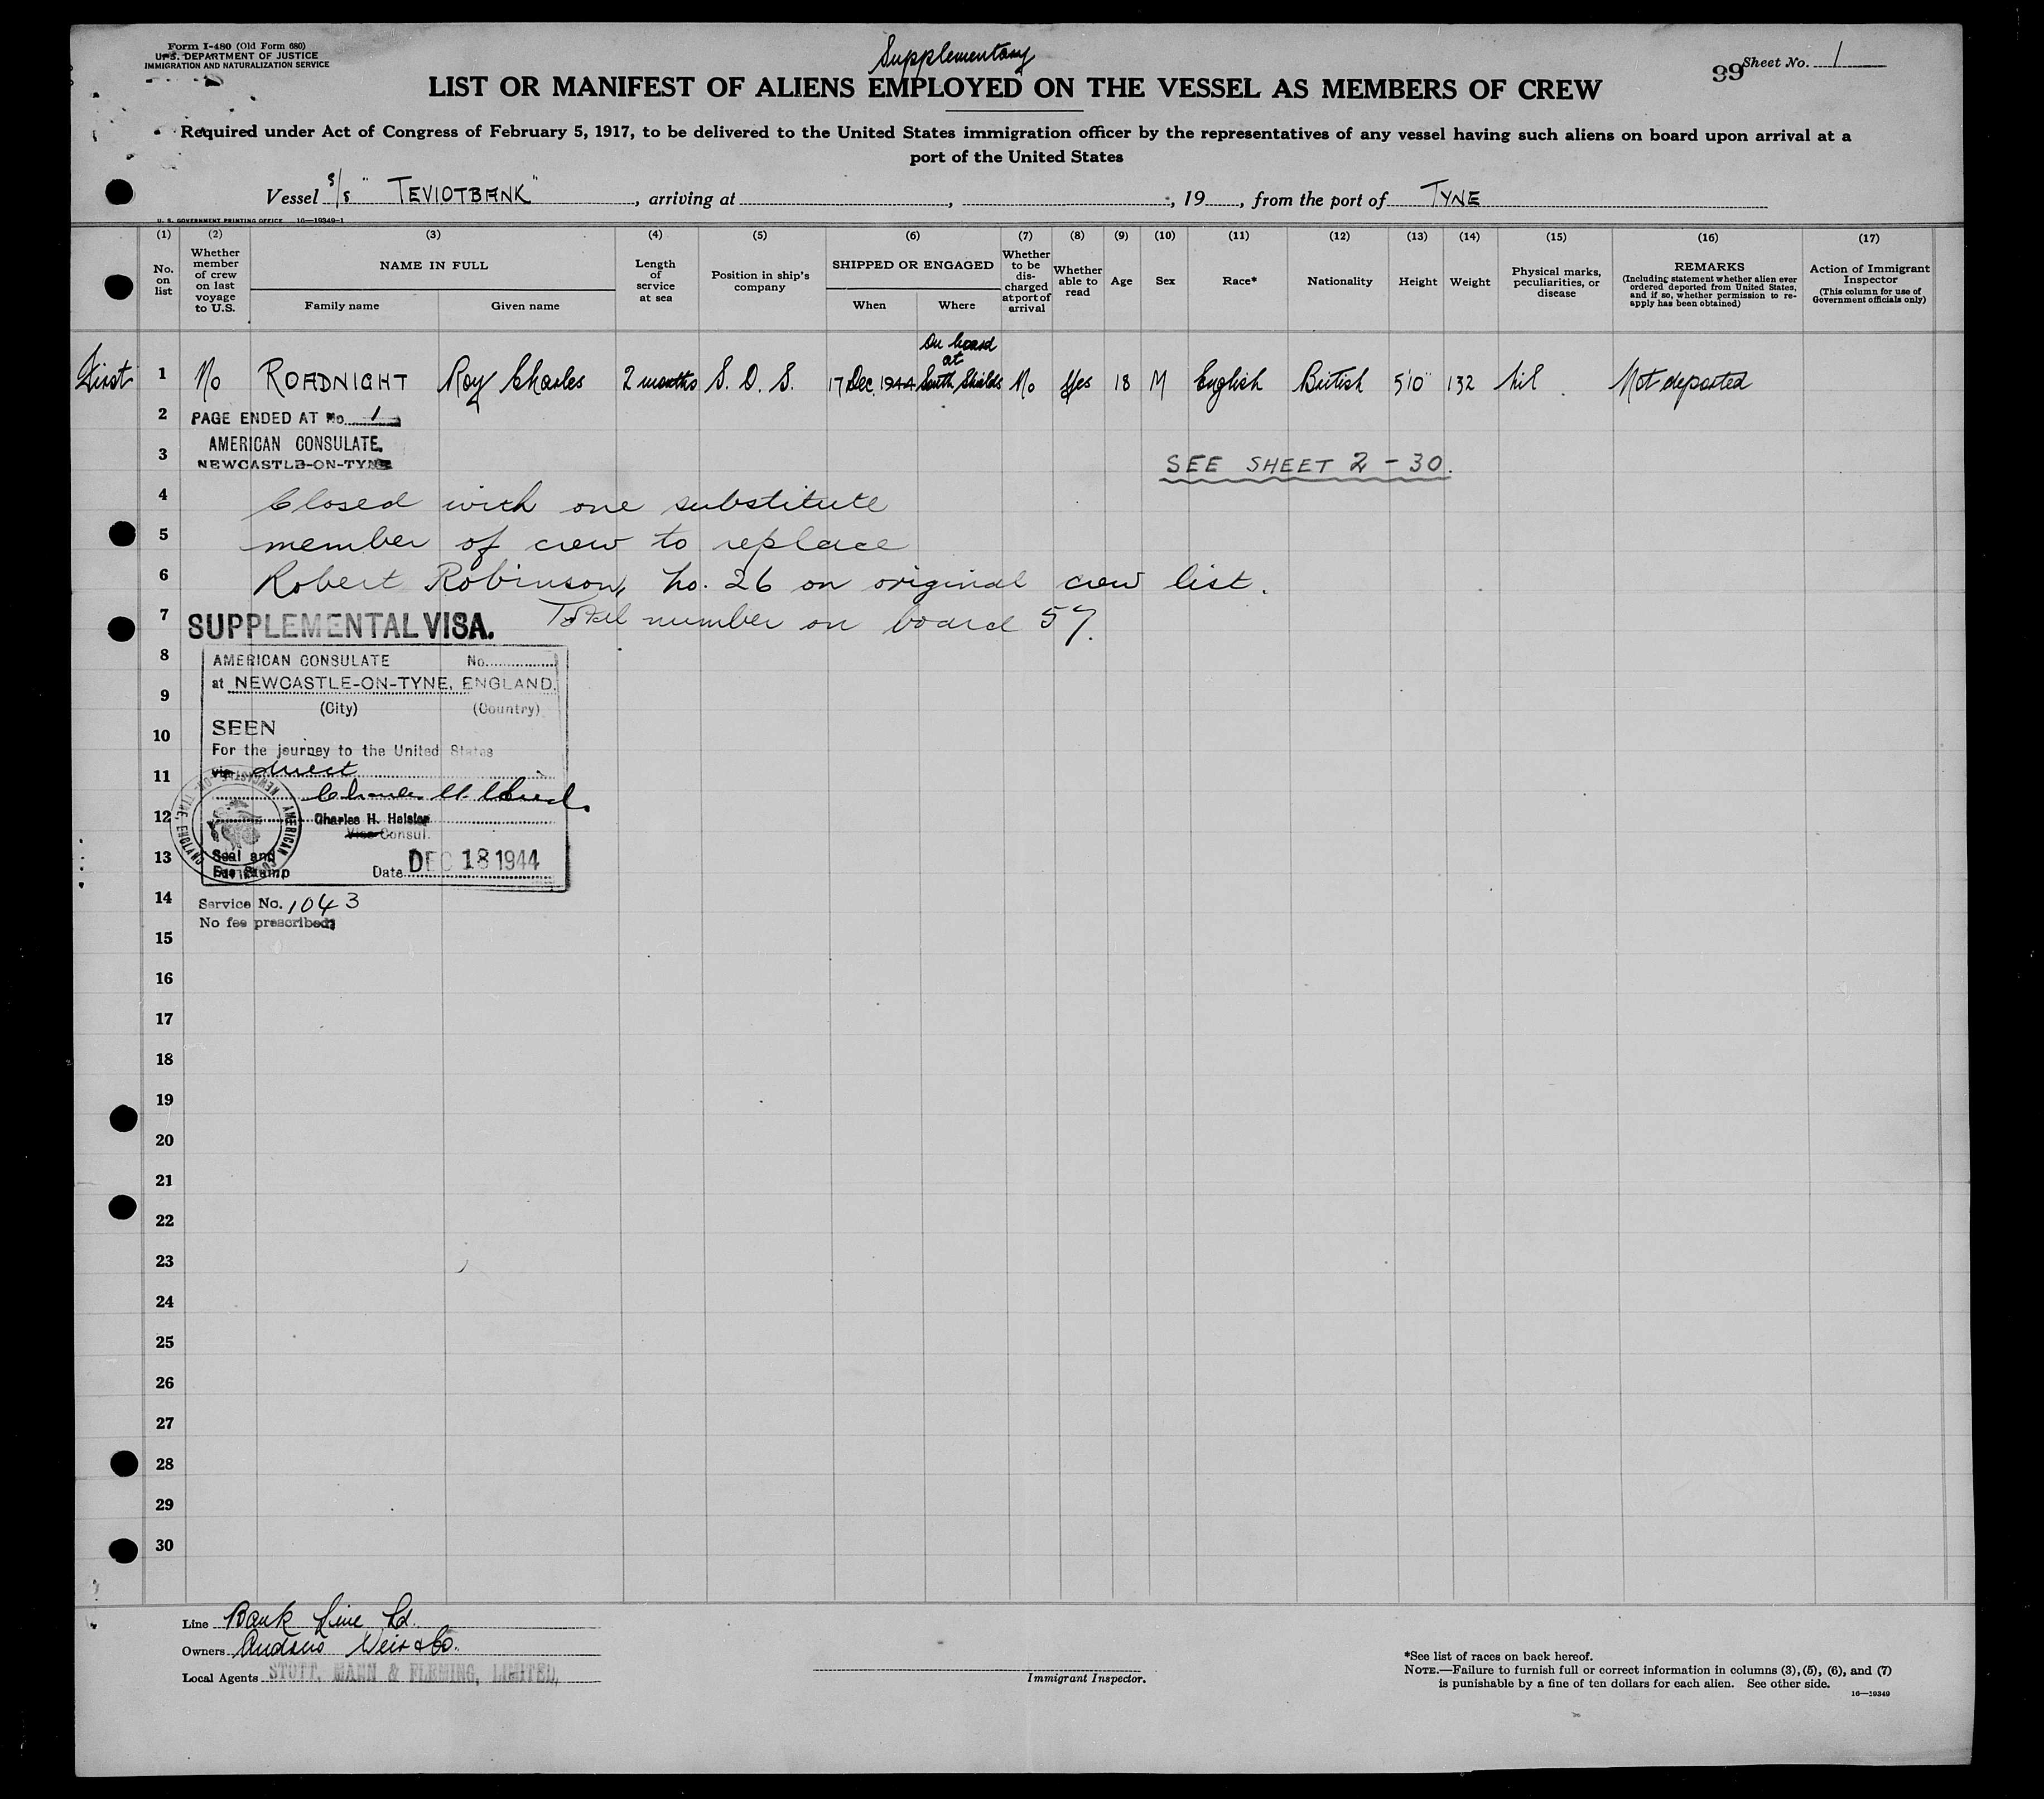 Form I-480 (Old Form 680)
U. S. DEPARTMENT OF JUSTICE
IMMIGRATION AND NATURALIZATION SERVICE
Supplementary
99
Sheet No. 1
LIST OR MANIFEST OF ALIENS EMPLOYED ON THE VESSEL AS MEMBERS OF CREW
Required under Act of Congress of February 5, 1917, to be delivered to the United States immigration officer by the representatives of any vessel having such aliens on board upon arrival at a
port of the United States
Vessel S/S "TEVIOTBANK", arriving at , , 19 , from the port of TYNE
U. S. GOVERNMENT PRINTING OFFICE 16—19349-1
(1) No. on list
(2) Whether member of crew on last voyage to U.S.
(3) NAME IN FULL
Family name
Given name
(4) Length of service at sea
(5) Position in ship's company
(6) SHIPPED OR ENGAGED
When
Where
(7) Whether to be discharged at port of arrival
(8) Whether able to read
(9) Age
(10) Sex
(11) Race*
(12) Nationality
(13) Height
(14) Weight
(15) Physical marks, peculiarities, or disease
(16) REMARKS
(Including statement whether alien ever ordered deported from United States, and if so, whether permission to re-apply has been obtained)
(17) Action of Immigrant Inspector
(This column for use of Government officials only)
First 1 No ROADNIGHT Roy Charles 2 months S. O. S. 17 Dec. 1944 On board at South Shields No Yes 18 M English British 5'10" 132 Nil Not deported
2 PAGE ENDED AT No. 1
AMERICAN CONSULATE.
3 NEWCASTLE-ON-TYNE
SEE SHEET 2 - 30.
4 Closed with one substitute
5 member of crew to replace
6 Robert Robinson, no. 26 on original crew list.
7 Total number on board 57.
SUPPLEMENTAL VISA.
8 AMERICAN CONSULATE No.
9 at NEWCASTLE-ON-TYNE, ENGLAND.
(City) (Country)
10 SEEN
For the journey to the United States
11 via direct
12 Charles H. Heisler
Vice Consul.
AMERICAN CONSULATE NEWCASTLE-ON-TYNE, ENGLAND
13 Seal and
Fee Stamp
Date DEC 18 1944
14 Service No. 1043
No fee prescribed
15
16
17
18
19
20
21
22
23
24
25
26
27
28
29
30
Line Bank Line Ld.
Owners Andrew Weir & Co.
Local Agents STOTT, MANN & FLEMING, LIMITED,
Immigrant Inspector.
*See list of races on back hereof.
NOTE.—Failure to furnish full or correct information in columns (3), (5), (6), and (7)
is punishable by a fine of ten dollars for each alien. See other side.
16—19349